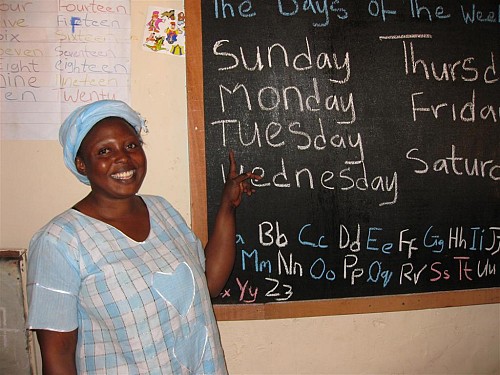 our Fourteen
ive Fifteen
ix Sixteen
even Seventeen
Eight eighteen
Nine Nineteen
en Twenty
The Days of The Week
Sunday
Monday
Tuesday
Wednesday
Thursd
Frida
Saturd
a Bb Cc Dd Ee Ff Gg Hh Ii Jj
Mm Nn Oo Pp Qq Rr Ss Tt Uu
x Yy Zz